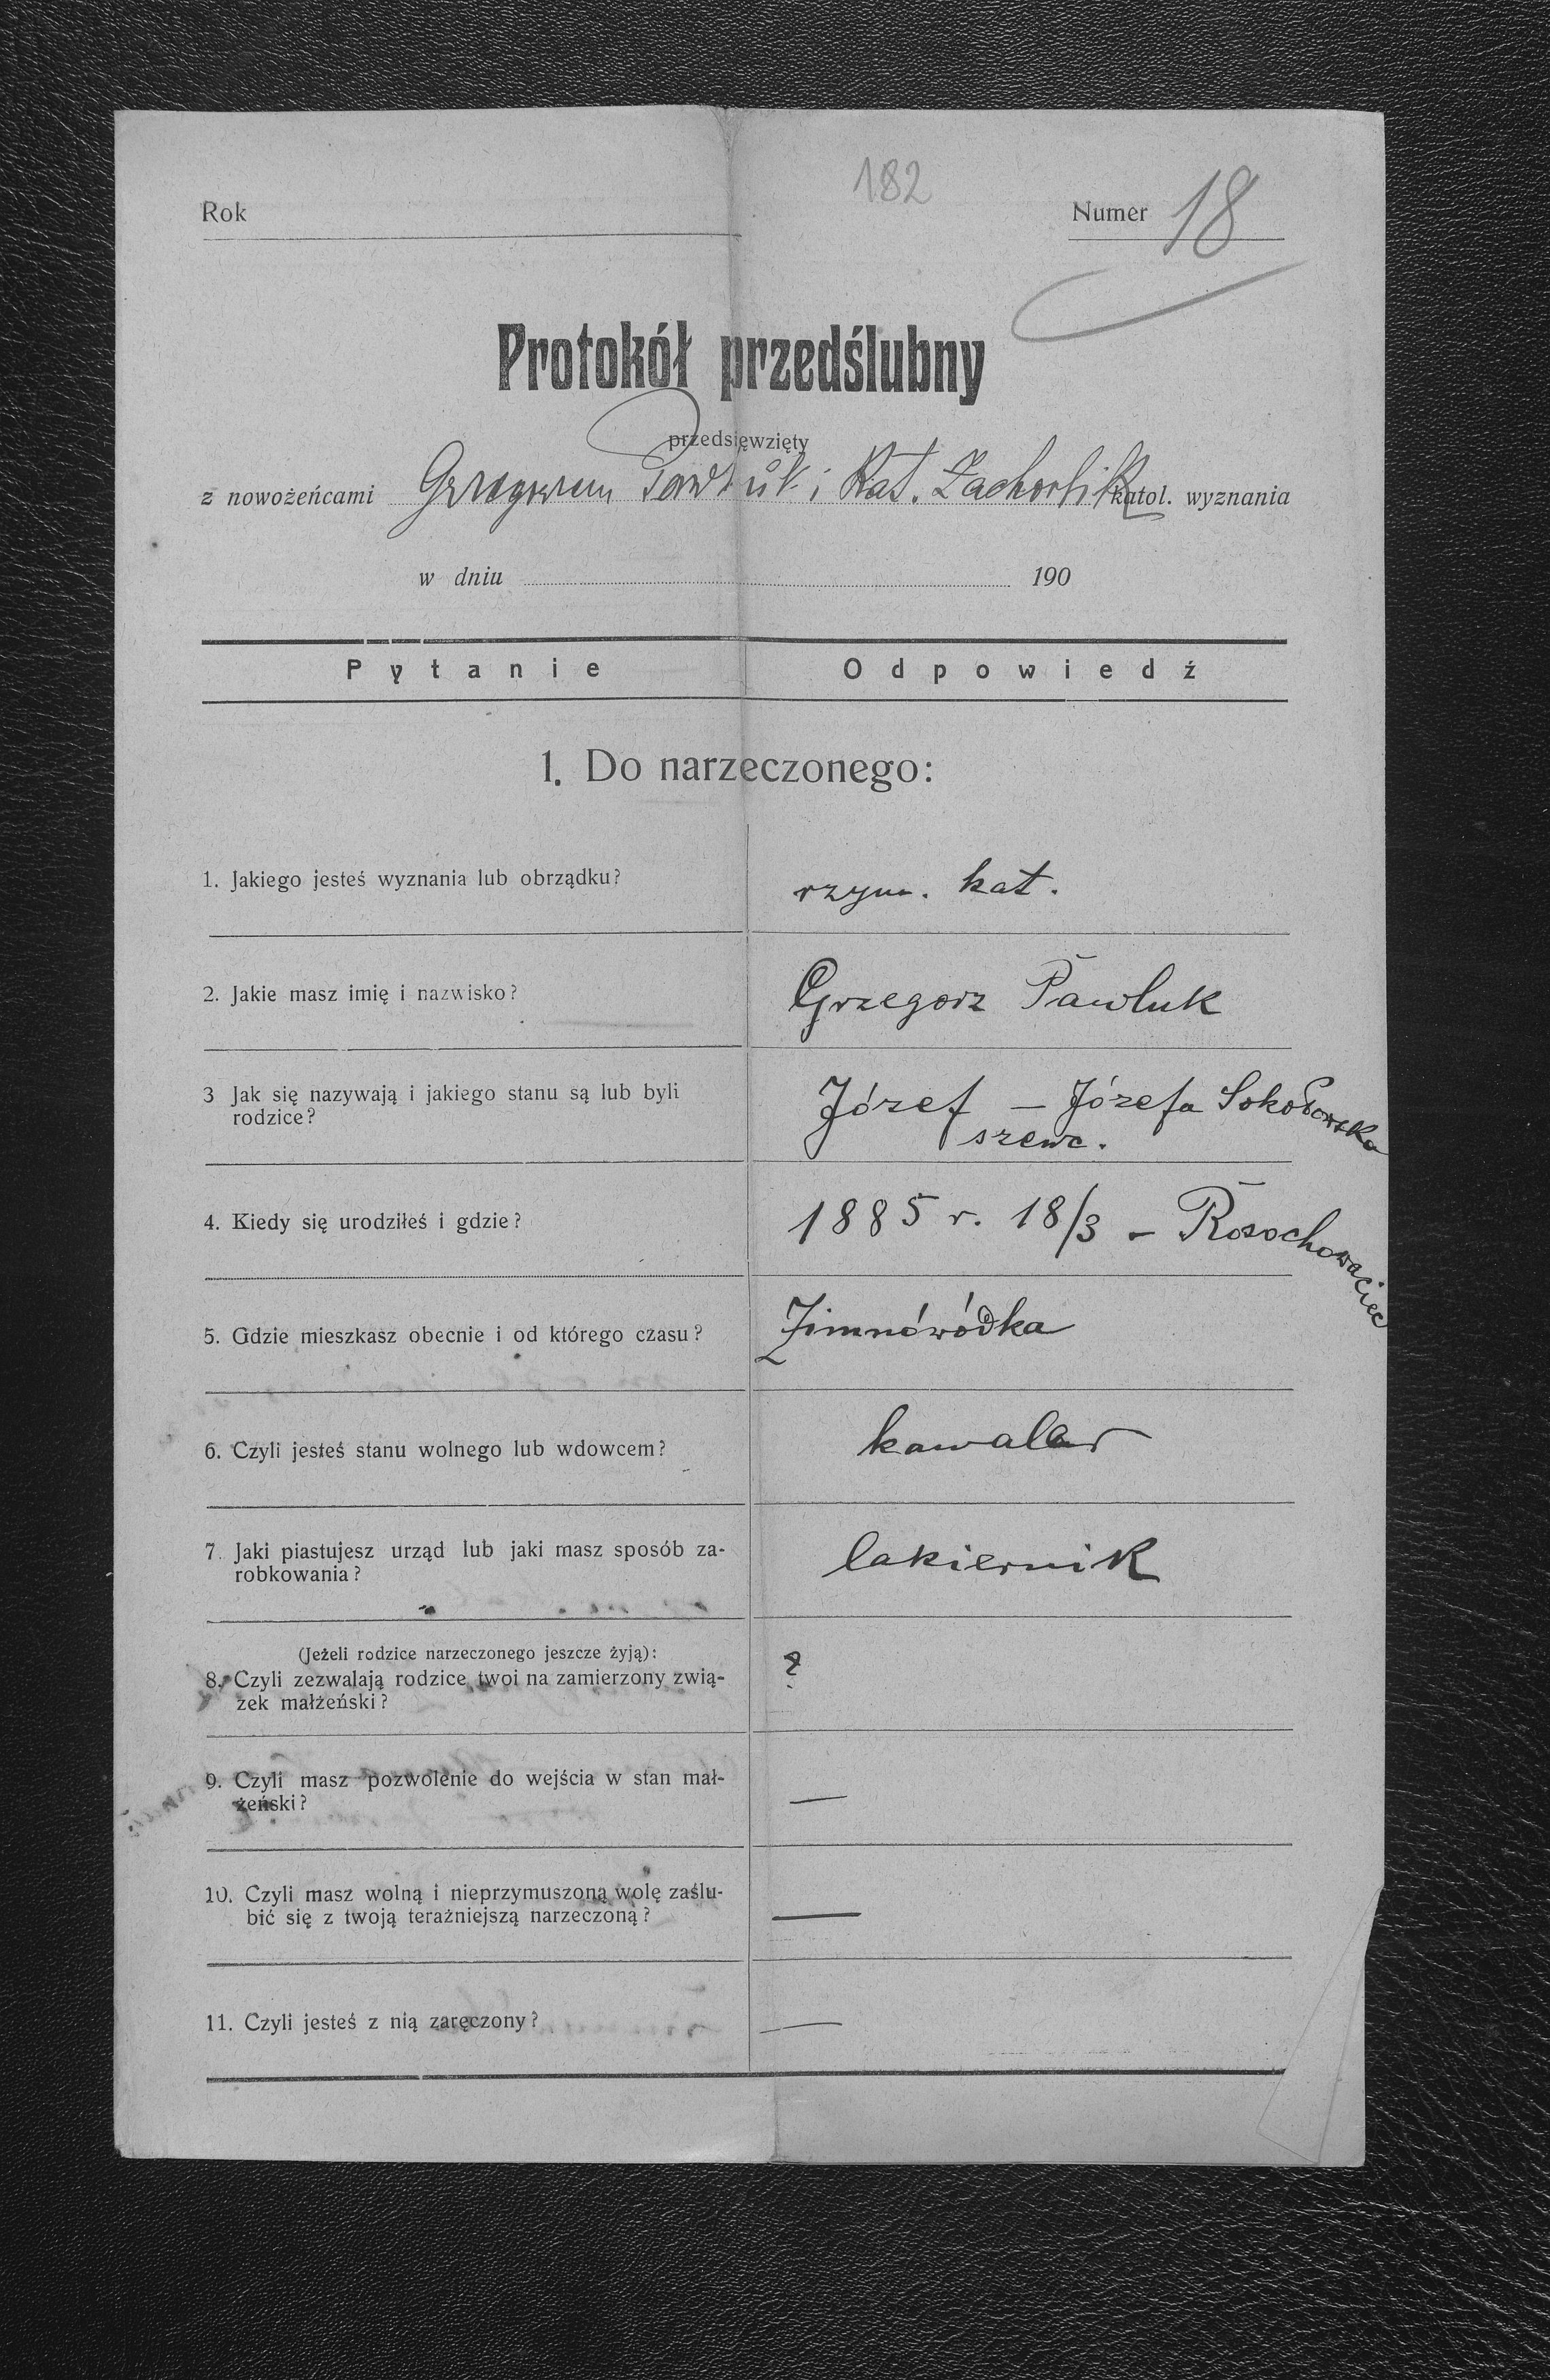 182
Rok
Numer 18
Protokół przedślubny
przedsięwzięty
z nowożeńcami Grzegorzem Pawluk i Kat. Zachorlik katol. wyznania
w dniu 190
Pytanie Odpowiedź
1. Do narzeczonego:
1. Jakiego jesteś wyznania lub obrządku?
rzym. kat.
2. Jakie masz imię i nazwisko?
Grzegorz Pawluk
3 Jak się nazywają i jakiego stanu są lub byli
rodzice?
Józef – Józefa Sokołowska
szewc.
4. Kiedy się urodziłeś i gdzie?
1885 r. 18/3 – Rosochowaciec
5. Gdzie mieszkasz obecnie i od którego czasu?
Zimnówódka
6. Czyli jesteś stanu wolnego lub wdowcem?
kawaler
7. Jaki piastujesz urząd lub jaki masz sposób za-
robkowania?
lakiernik
(Jeżeli rodzice narzeczonego jeszcze żyją):
8. Czyli zezwalają rodzice twoi na zamierzony zwią-
zek małżeński?
?
9. Czyli masz pozwolenie do wejścia w stan mał-
żeński?
—
10. Czyli masz wolną i nieprzymuszoną wolę zaślu-
bić się z twoją teraźniejszą narzeczoną?
—
11. Czyli jesteś z nią zaręczony?
—